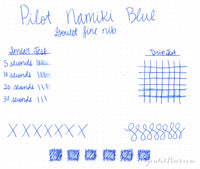 Pilot Namiki Blue
Goulet fine nib
Smear Test
5 seconds
10 seconds
20 seconds
30 seconds
Drip Test
GouletPens.com